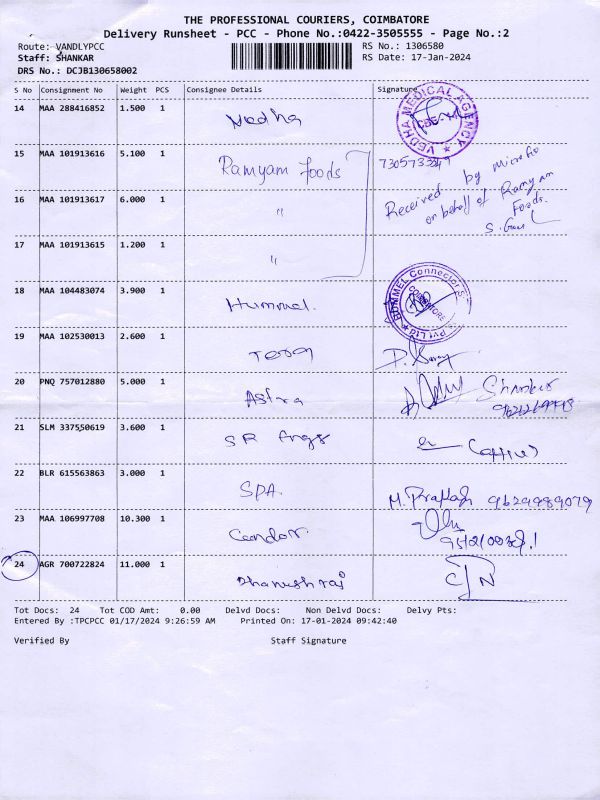 THE PROFESSIONAL COURIERS, COIMBATORE
Delivery Runsheet - PCC - Phone No.:0422-3505555 - Page No.:2
Route: VANDLYPCC RS No.: 1306580
Staff: SHANKAR RS Date: 17-Jan-2024
DRS No.: DCJB130658002
S No Consignment No Weight PCS Consignee Details Signature
14 MAA 288416852 1.500 1 Vedha VEDHA MEDICAL AGENCY
15 MAA 101913616 5.100 1 Ramyam foods
Received by Microfio
16 MAA 101913617 6.000 1 " on behalf of Ramyam
Foods.
17 MAA 101913615 1.200 1 "
18 MAA 104483074 3.900 1 Hummel. HUMMEL Connector Pvt Ltd COIMBATORE
19 MAA 102530013 2.600 1
20 PNQ 757012880 5.000 1 Astra Shanker
21 SLM 337550619 3.600 1 SR
22 BLR 615563863 3.000 1 SPA. M. 9629989079
23 MAA 106997708 10.300 1 Condor
24 AGR 700722824 11.000 1 Dhanushraj
Tot Docs: 24 Tot COD Amt: 0.00 Delvd Docs: Non Delvd Docs: Delvy Pts:
Entered By :TPCPCC 01/17/2024 9:26:59 AM Printed On: 17-01-2024 09:42:40
Verified By Staff Signature